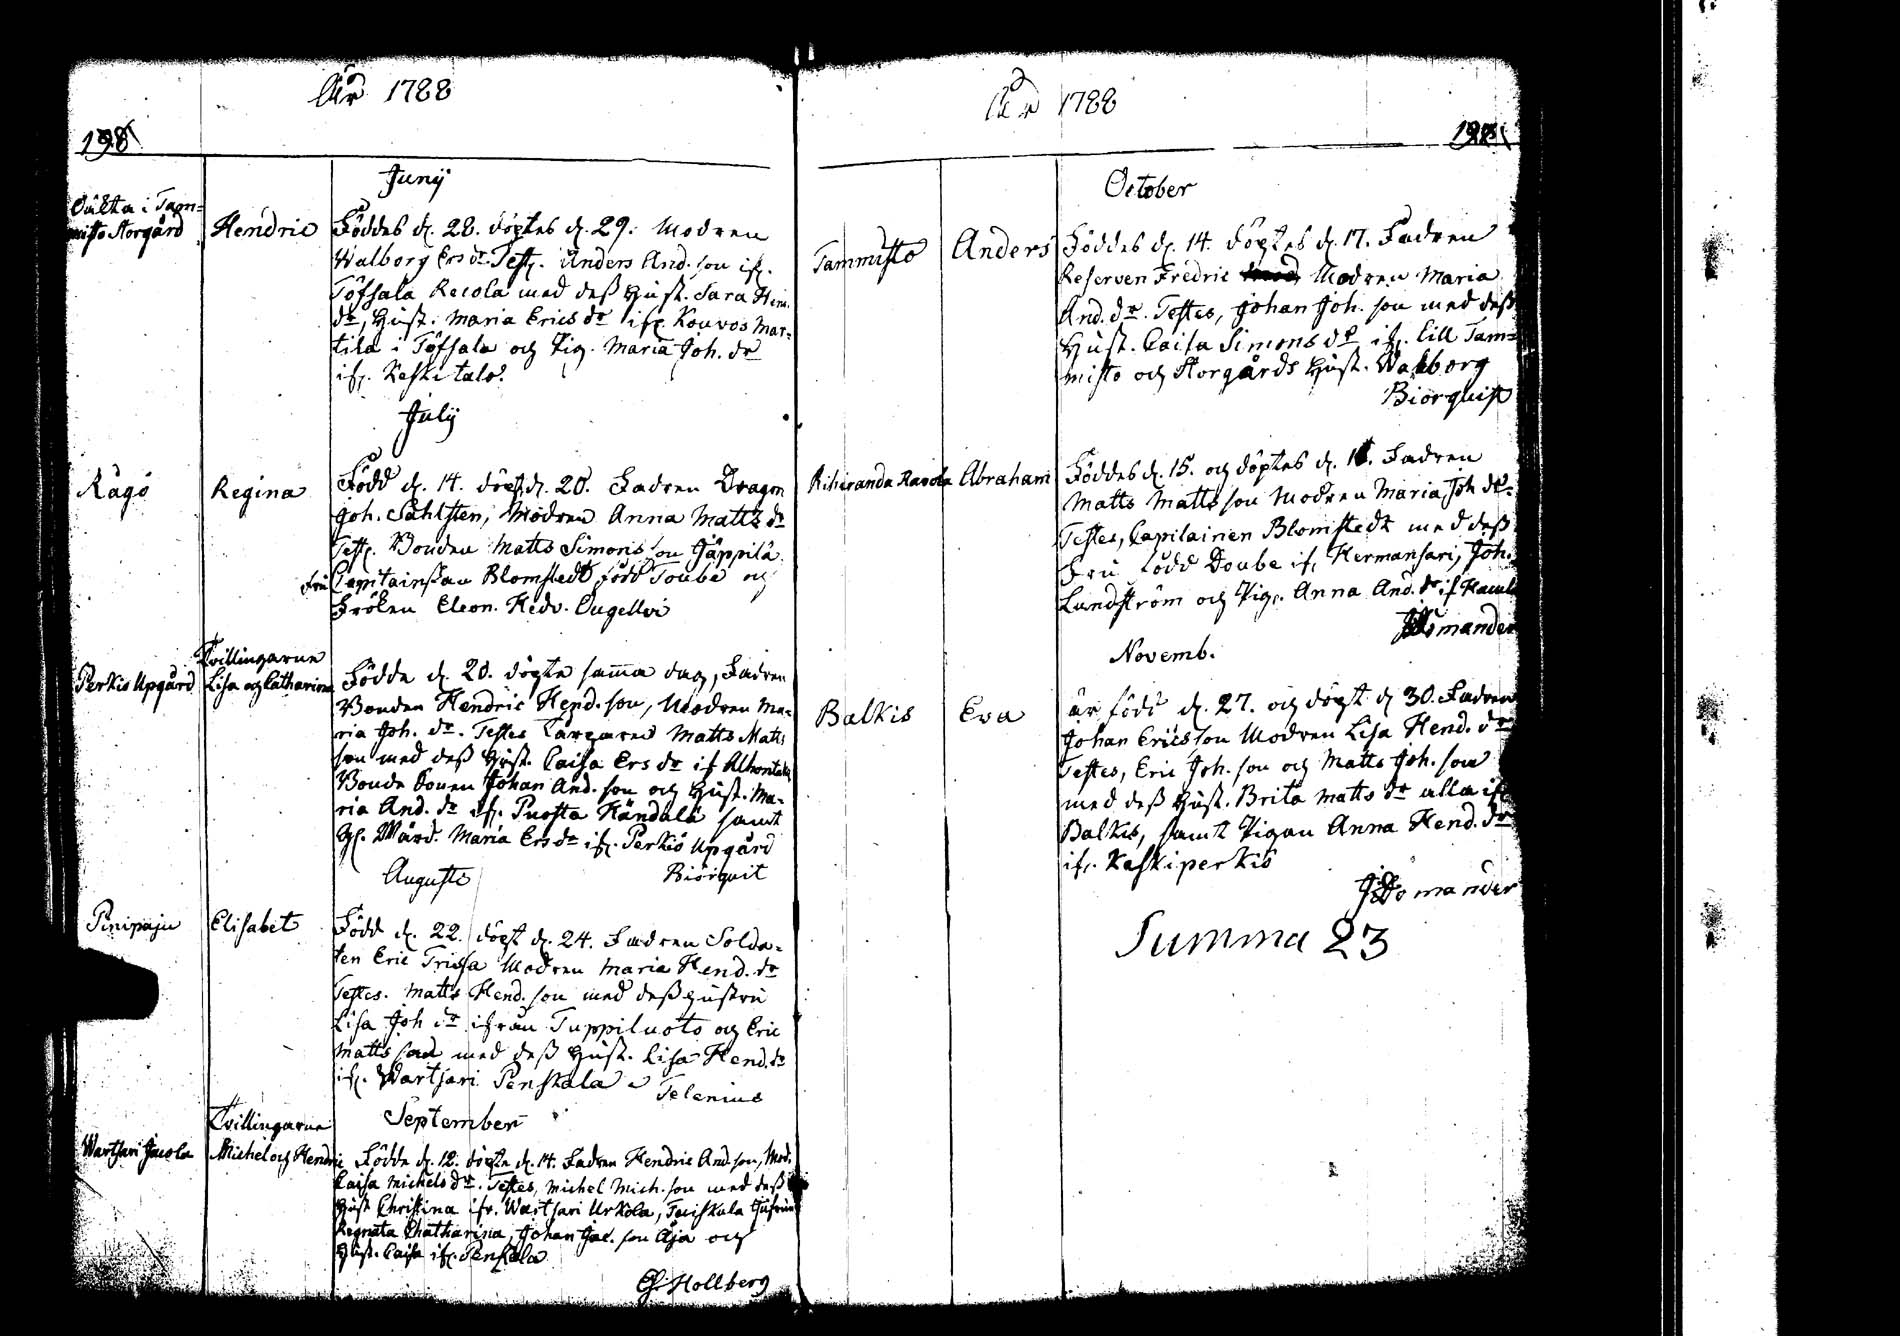 År 1788
198
Junij
Oäkta i Tam=
misto Storgård
Hendric
Föddes d. 28. döptes d. 29. Modren
Walborg Ersdr. Test. Anders And.son if.
Töfsala Recola med dess Hust. Sara Hein.
dr, Hust. Maria Ericsdr if. Kouvos Mar=
tila i Töfsala och Pig. Maria Joh.dr
if. Keskitalo.
Julij
Rågö
Regina
Född d. 14. döpt d. 20. Fadren Dragon
Joh. Sahlsten, Modren Anna Mattsdr
Test. Bonden Matts Simonsson Jäppilä
Fru Capitainskan Blomstedt född Toube och
Fröken Eleon. Hedv.
Perkiö Upgård
Tvillingarne
Lisa och Catharina
Födde d. 20. döpte samma dag, Fadren
Bonden Hendric Hend.son, Modren Ma=
ria Joh.dr. Testes Matts Matts
son med dess Hust. Caisa Ersdr if
Bonde Sonen Johan And.son och Hust. Ma=
ria And.dr if. Puosta Händälä samt
Maria Ersdr if. Perkiö Upgård
Biörquist
Augusti
Pinipaju
Elisabet
Född d. 22. döpt d. 24. Fadren Solda=
ten Eric Trissa Modren Maria Hend.dr
Testes. Matts Hend.son med dess Hustru
Lisa Joh dr ifrån Tuppiluoto och Eric
Mattsson med dess Hust. Lisa Hend.dr
if. Wartsari Penskala
Telenius
September
Wartsari Jacola
Tvillingarne
Michel och Hendric
Födde d. 12. döpte d. 14. Fadren Hendric And.son, Mod.
Caisa Michelsdr. Testes, Michel Mich.son med dess
Hust Christina ifr. Wartsari Urkola,
Regnata Chatharina, Johan Jac.son Äjä och
Hust. Caisa if. Penskala
Hollberg
År 1788
198
October
Tammisto
Anders
Föddes d. 14. döptes d. 17. Fadren
Reserven Fredric Modren Maria
And.dr. Testes, Johan Joh.son med dess
Hust. Caisa Simonsdr if. Lill Tam=
misto och Storgårds Hust. Walborg
Biörquist
Rihiranda Rasola
Abraham
Föddes d. 15. och döptes d. Fadren
Matts Mattsson Modren Maria Joh dr.
Testes, Capitainen Blomstedt med dess
Fru född Doube if. Hermansari, Joh.
Lundström och Pig. Anna And.dr if
Novemb.
Balkis
Eva
är född d. 27. och döpt d 30. Fadren
Johan Ericsson Modren Lisa Hend.dr
Testes, Eric Joh.son och Matts Joh.son
med dess Hust. Brita Mattsdr alla if
Balkis, samt Pigan Anna Hend.dr
if. Keskiperkiö
Summa 23